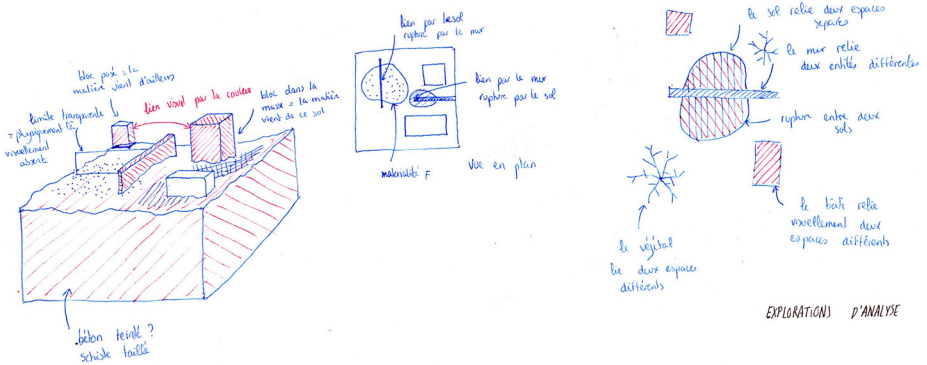 bloc posé = la
matière vient d'ailleurs
limite transparente
= physiquement là
visuellement
absent
lien visuel par la couleur
bloc dans la
masse = la matière
vient de ce sol
béton teinté ?
schiste taillé
lien par le sol
rupture par le mur
lien par le mur
rupture par le sol
matérialité F
vue en plan
le sol relie deux espaces
séparés
le mur relie
deux entités différentes
rupture entre deux
sols
le bâti relie
visuellement deux
espaces différents
le végétal
lie deux espaces
différents
EXPLORATIONS D'ANALYSE